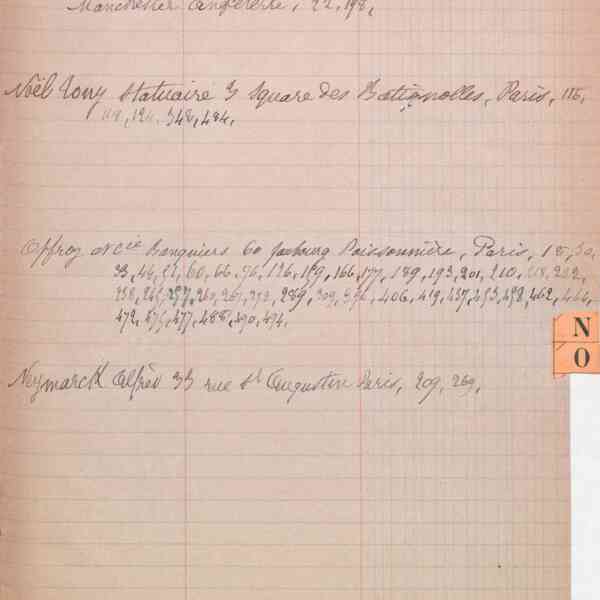 Manchester Angleterre, 22, 198,
Noël Tony Statuaire 3 Square des Batignolles, Paris, 116,
118, 124, 348, 484,
Offroy et Cie Banquiers 60 faubourg Poissonnière, Paris, 18, 30,
33, 46, 51, 60, 66, 96, 126, 159, 166, 177, 189, 193, 201, 210, 218, 222,
238, 245, 257, 260, 267, 273, 289, 309, 396, 406, 419, 437, 453, 458, 462, 466,
472, 475, 477, 488, 490, 494,
N
O
Neymarck Alfred 33 rue St Augustin Paris, 209, 269,